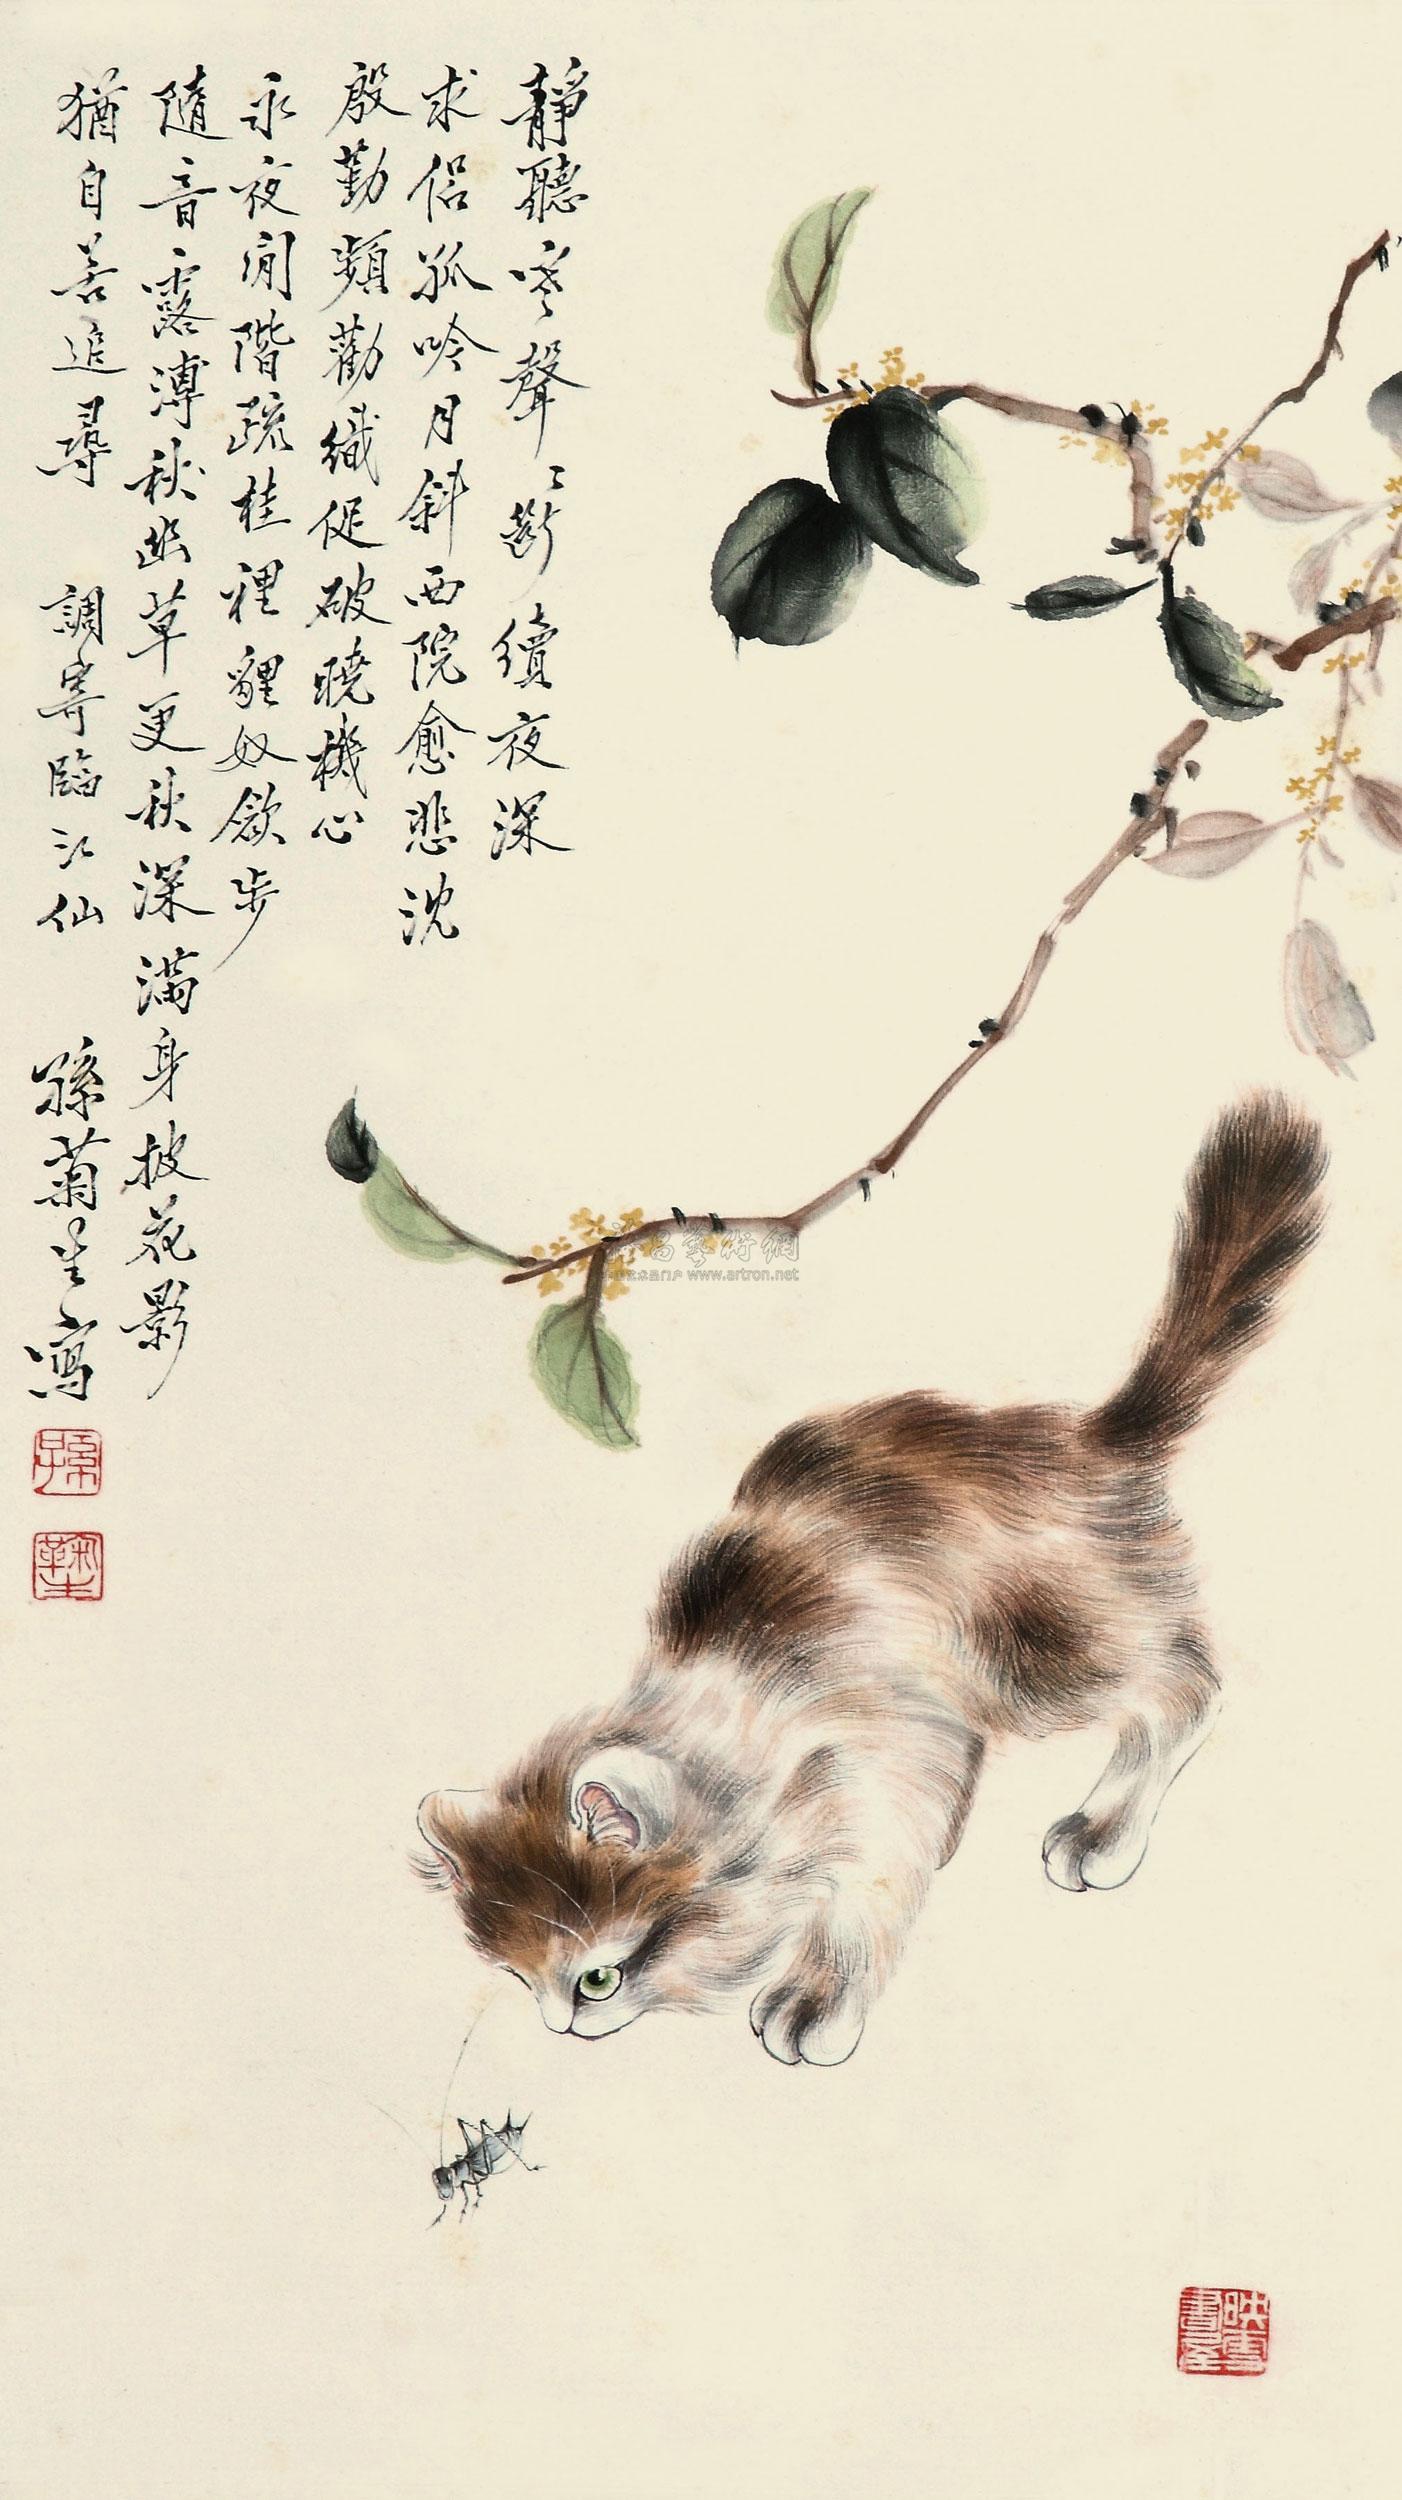 靜聽聲〻斷續夜深
求侶孤吟月斜西院愈悲沈
殷勤頻勸織促破曉機心
永夜閒階疏桂裡貍奴斂步
隨音露漙秋幽草更秋深滿身披花影
猶自苦追尋 調寄臨江仙 孫菊生寫
孫
鞠生
雅昌藝術網
www.artron.net
映雪書屋